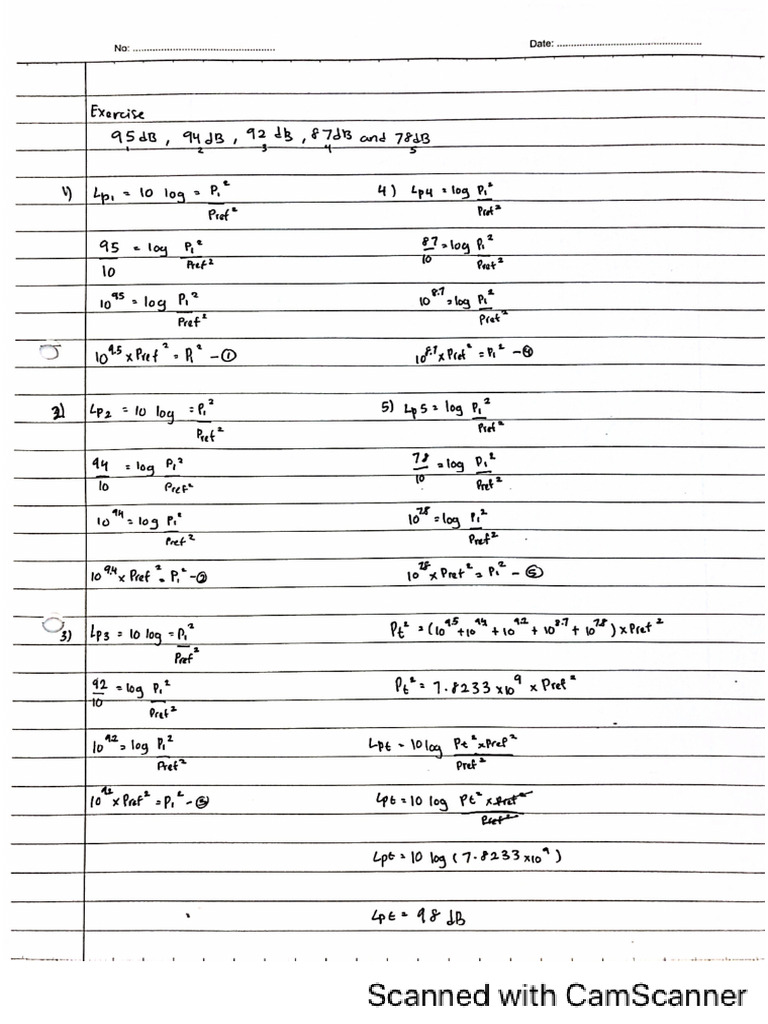 No: ........................................
Date: ........................................
Exercise
95 dB, 94 dB, 92 dB, 87dB and 78dB
1 2 3 4 5
1) Lp1 = 10 log = P1²/Pref²
95/10 = log P1²/Pref²
10^9.5 = log P1²/Pref²
10^9.5 x Pref² = P1² - ①
2) Lp2 = 10 log = P1²/Pref²
94/10 = log P1²/Pref²
10^94 = log P1²/Pref²
10^9.4 x Pref² = P1² - ②
3) Lp3 = 10 log = P1²/Pref²
92/10 = log P1²/Pref²
10^9.2 = log P1²/Pref²
10^92 x Pref² = P1² - ③
4) Lp4 = log P1²/Pref²
87/10 = log P1²/Pref²
10^8.7 = log P1²/Pref²
10^8.7 x Pref² = P1² - ④
5) Lp5 = log P1²/Pref²
78/10 = log P1²/Pref²
10^7.8 = log P1²/Pref²
10^7.8 x Pref² = P1² - ⑤
Pt² = (10^9.5 + 10^9.4 + 10^9.2 + 10^8.7 + 10^7.8) x Pref²
Pt² = 7.8233 x 10^9 x Pref²
Lpt = 10 log Pt² x Pref²/Pref²
Lpt = 10 log Pt² x Pref²/Pref²
Lpt = 10 log (7.8233 x10^9)
Lpt = 98 dB
Scanned with CamScanner